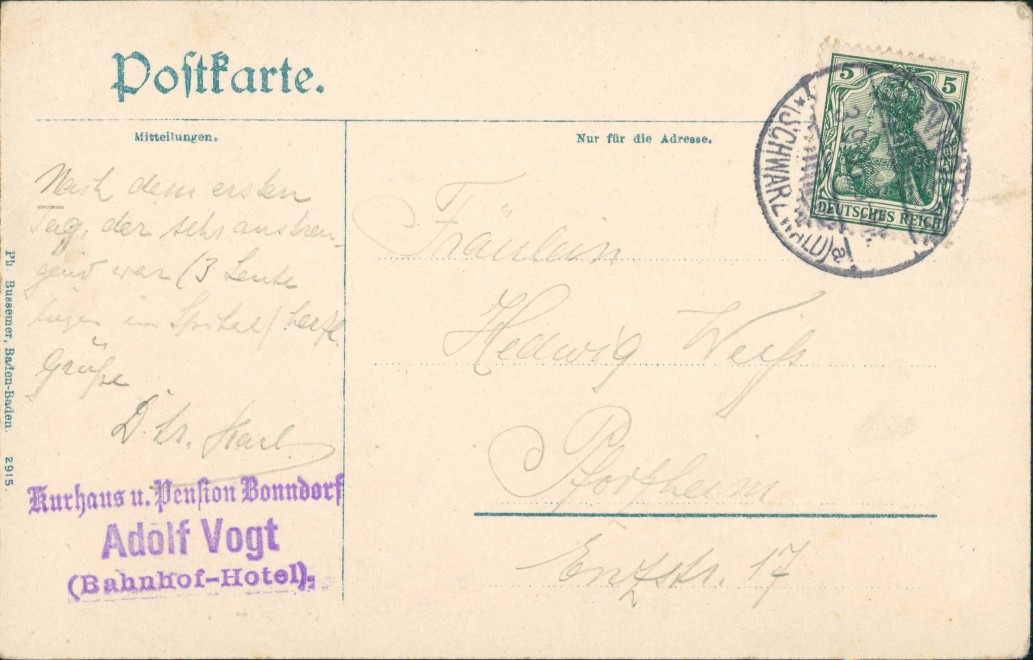 Postkarte.
Mitteilungen.
Nur für die Adresse.
5 5
DEUTSCHES REICH
(SCHWARZWALD) a
Nach dem ersten
Tag, der sehr anstren-
gend war (3 Leute
liegen im Spital) herzl.
Grüße
D. tr. Karl.
Fräulein
Hedwig Weiß
Pforzheim
Enzstr. 17
Kurhaus u. Pension Bonndorf
Adolf Vogt
(Bahnhof-Hotel),
Ph. Bussemer, Baden-Baden. 2915.